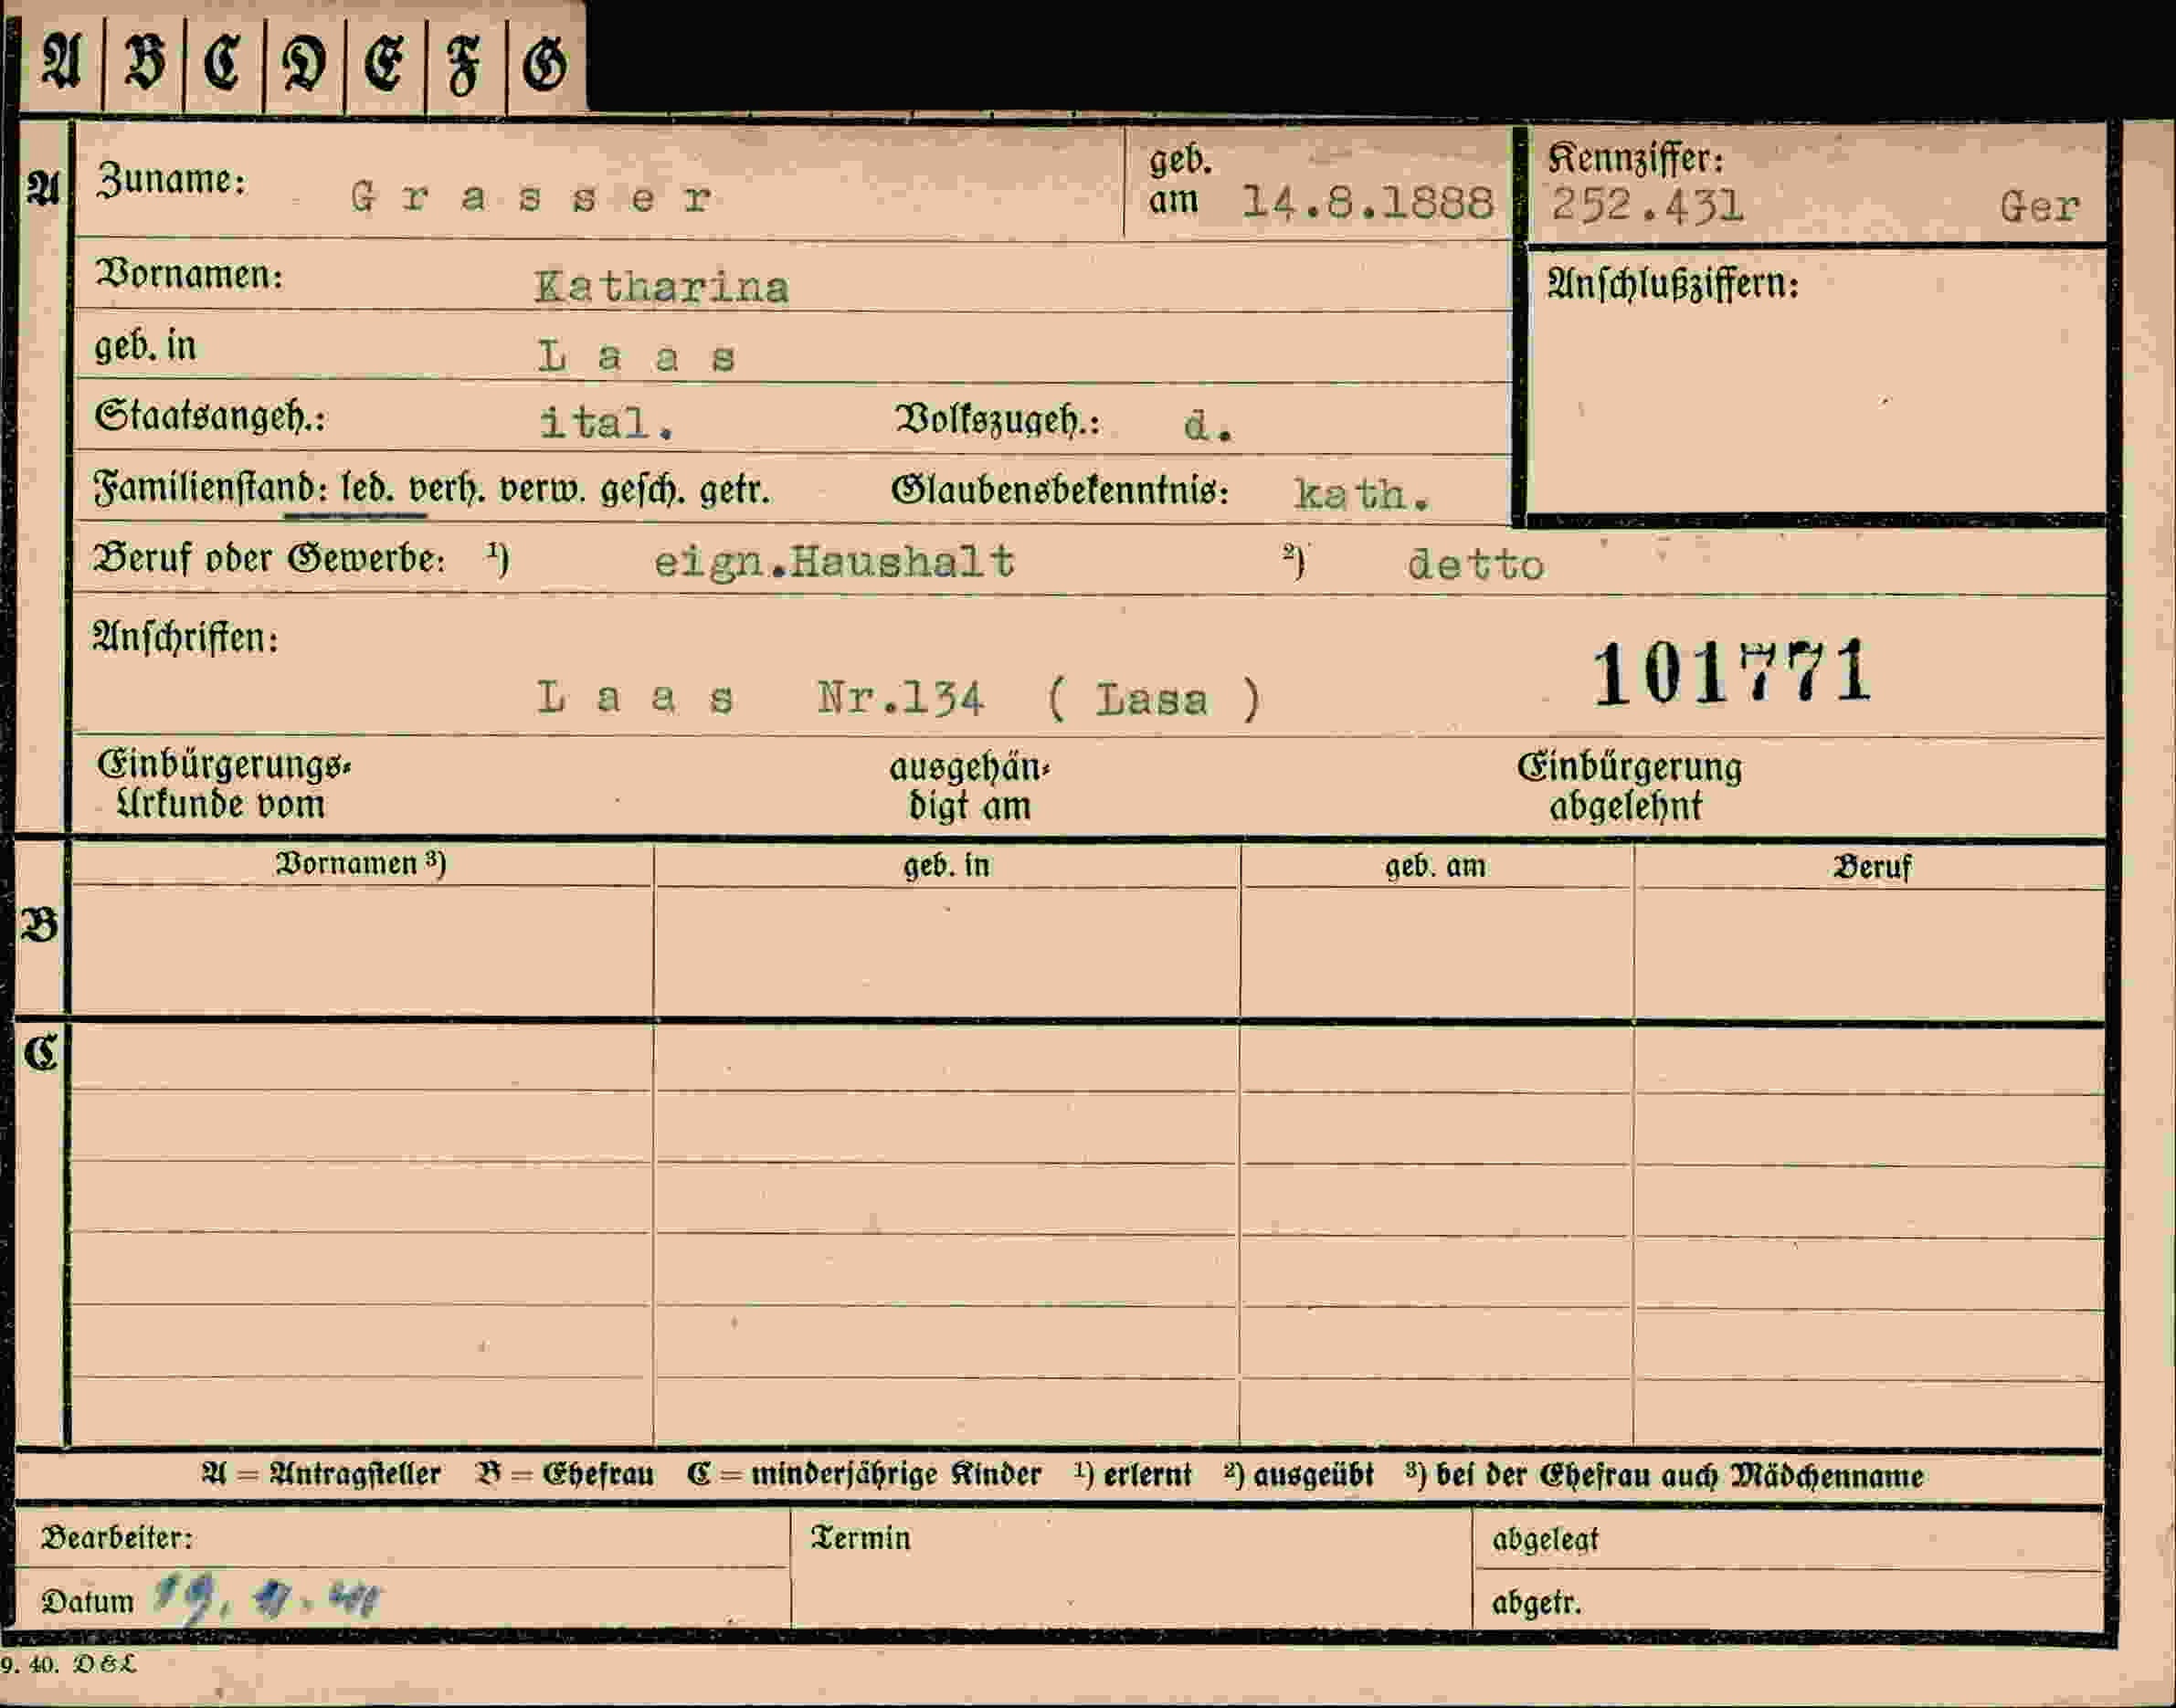 A B C D E F G
A Zuname: Grasser geb. am 14.8.1888 Kennziffer: 252.431 Ger
Vornamen: Katharina Anschlußziffern:
geb. in Laas
Staatsangeh.: ital. Volkszugeh.: d.
Familienstand: led. verh. verw. gesch. getr. Glaubensbekenntnis: kath.
Beruf oder Gewerbe: 1) eign.Haushalt 2) detto
Anschriften: 101771
Laas Nr.134 ( Lasa )
Einbürgerungs- ausgehän- Einbürgerung
Urkunde vom digt am abgelehnt
Vornamen 3) geb. in geb. am Beruf
B
C
A = Antragsteller B = Ehefrau C = minderjährige Kinder 1) erlernt 2) ausgeübt 3) bei der Ehefrau auch Mädchenname
Bearbeiter: Termin abgelegt
Datum 19. abgetr.
9. 40. D&L